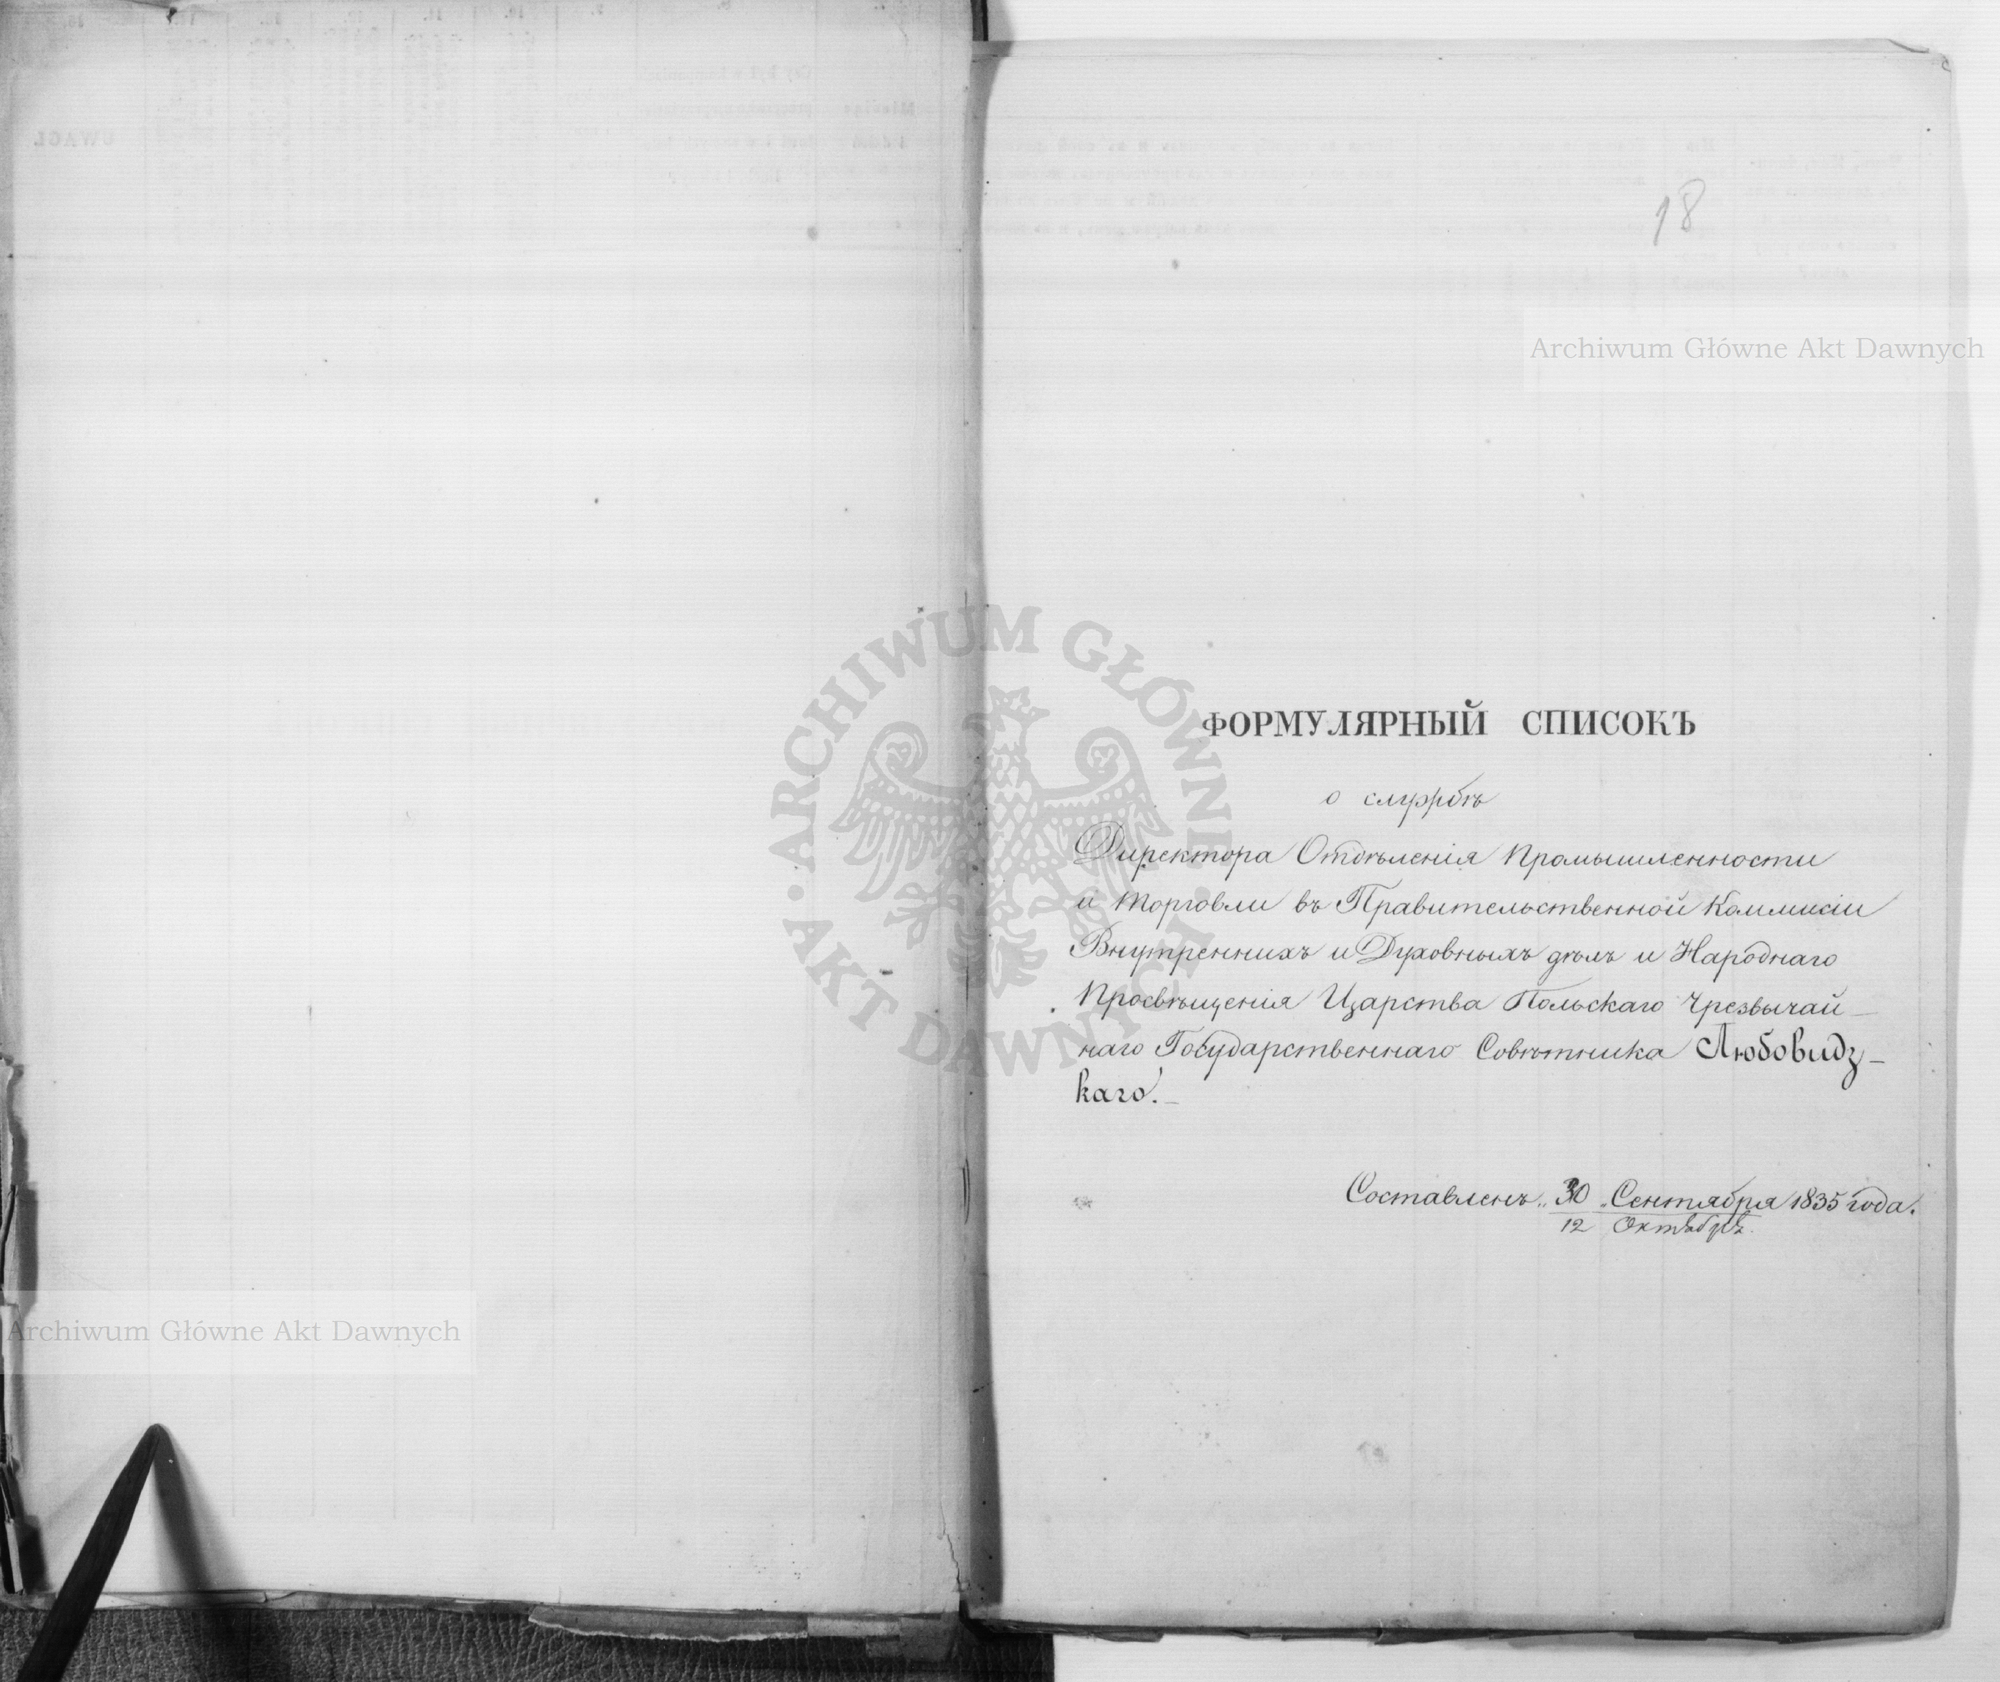 18
ФОРМУЛЯРНЫЙ СПИСОКЪ
о службѣ
Директора Отдѣленія Промышленности
и торговли въ Правительственной Коммисіи
Внутреннихъ и Духовныхъ дѣлъ и Народнаго
Просвѣщенія Царства Польскаго Чрезвычай-
наго Государственнаго Совѣтника Любовидз-
каго.
Составленъ „ 30 „ Сентября 1835 года.
12 Октября
Archiwum Główne Akt Dawnych
Archiwum Główne Akt Dawnych
ARCHIWUM GŁÓWNE · AKT DAWNYCH ·
UWAGI.